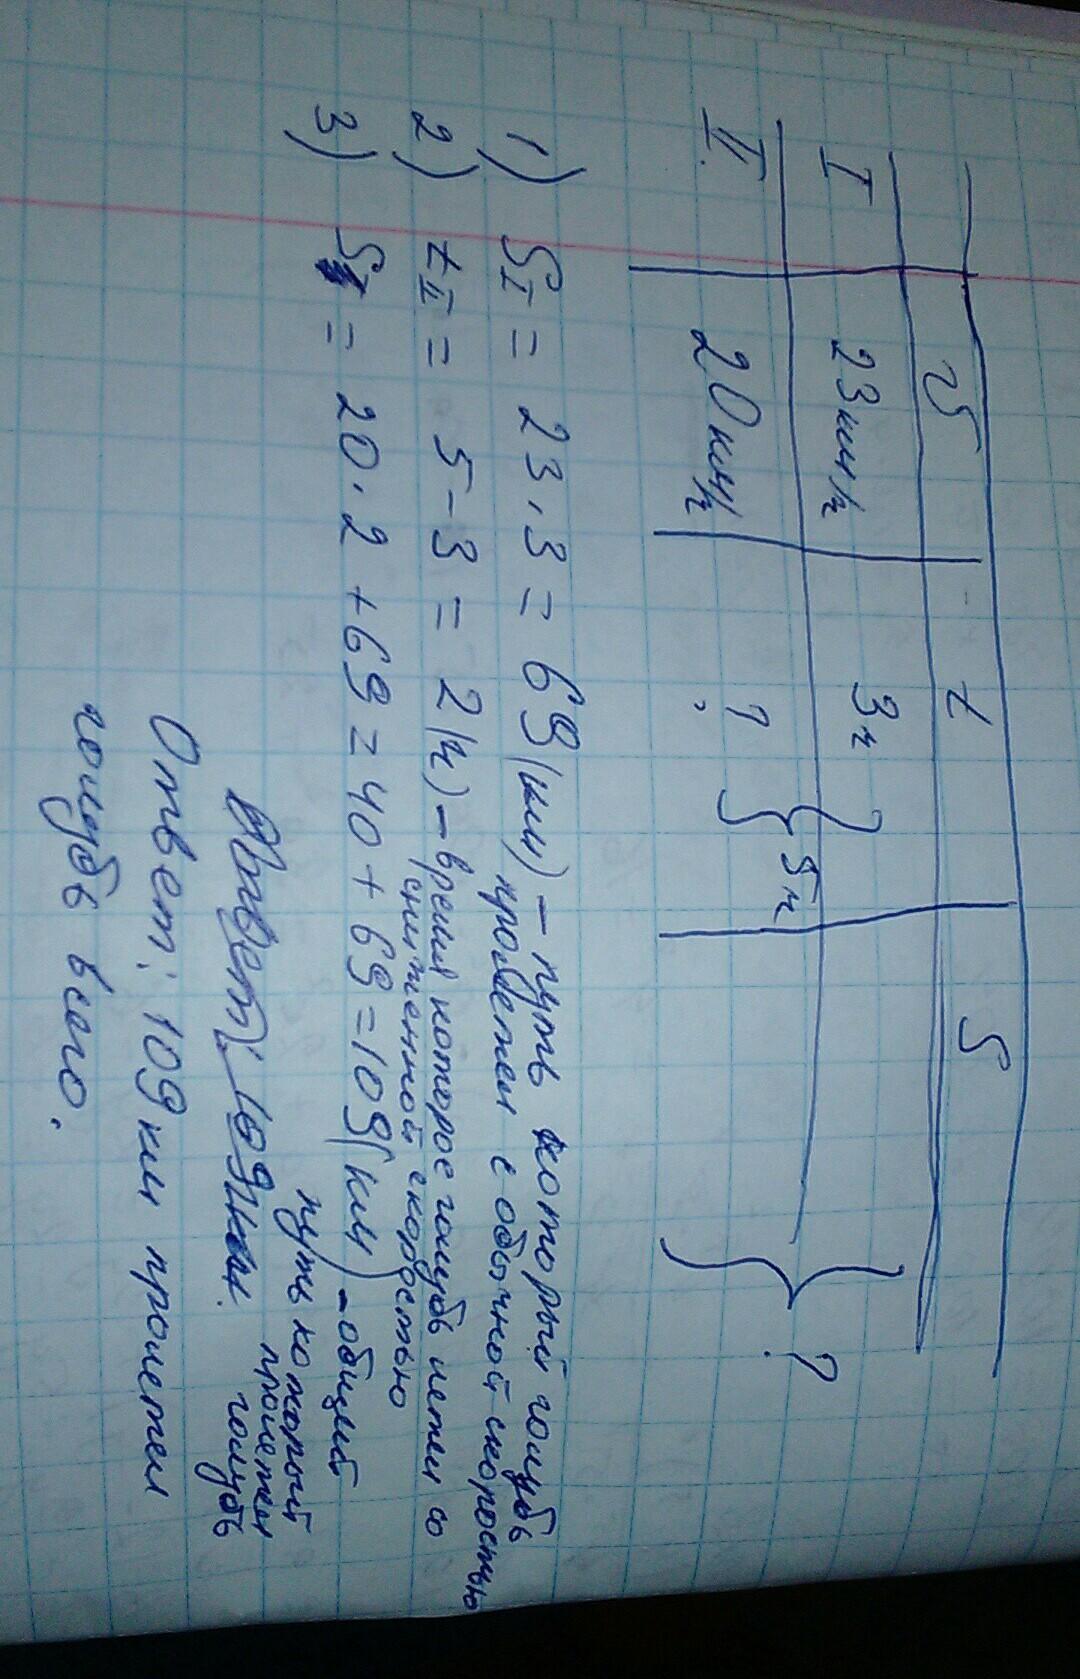 v t S
I 23км/ч 3ч
} 5ч } ?
II. 20км/ч ?
1) SI = 23·3 = 69(км) – путь который голубь
пролетел с обычной скоростью
2) tII = 5-3 = 2(ч) – время которое голубь летел со
сниженной скоростью
3) S = 20·2+69=40+69=109(км) – общий
путь который
пролетел
голубь
Ответ: 109км.
Ответ: 109км пролетел
голубь всего.